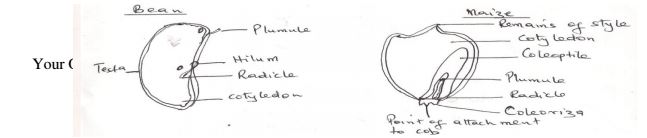 Bean
Plumule
Hilum
Radicle
cotyledon
Testa
Your
Maize
Remains of style
Cotyledon
Coleoptile
Plumule
Radicle
Coleoriza
Point of attachment
to cob